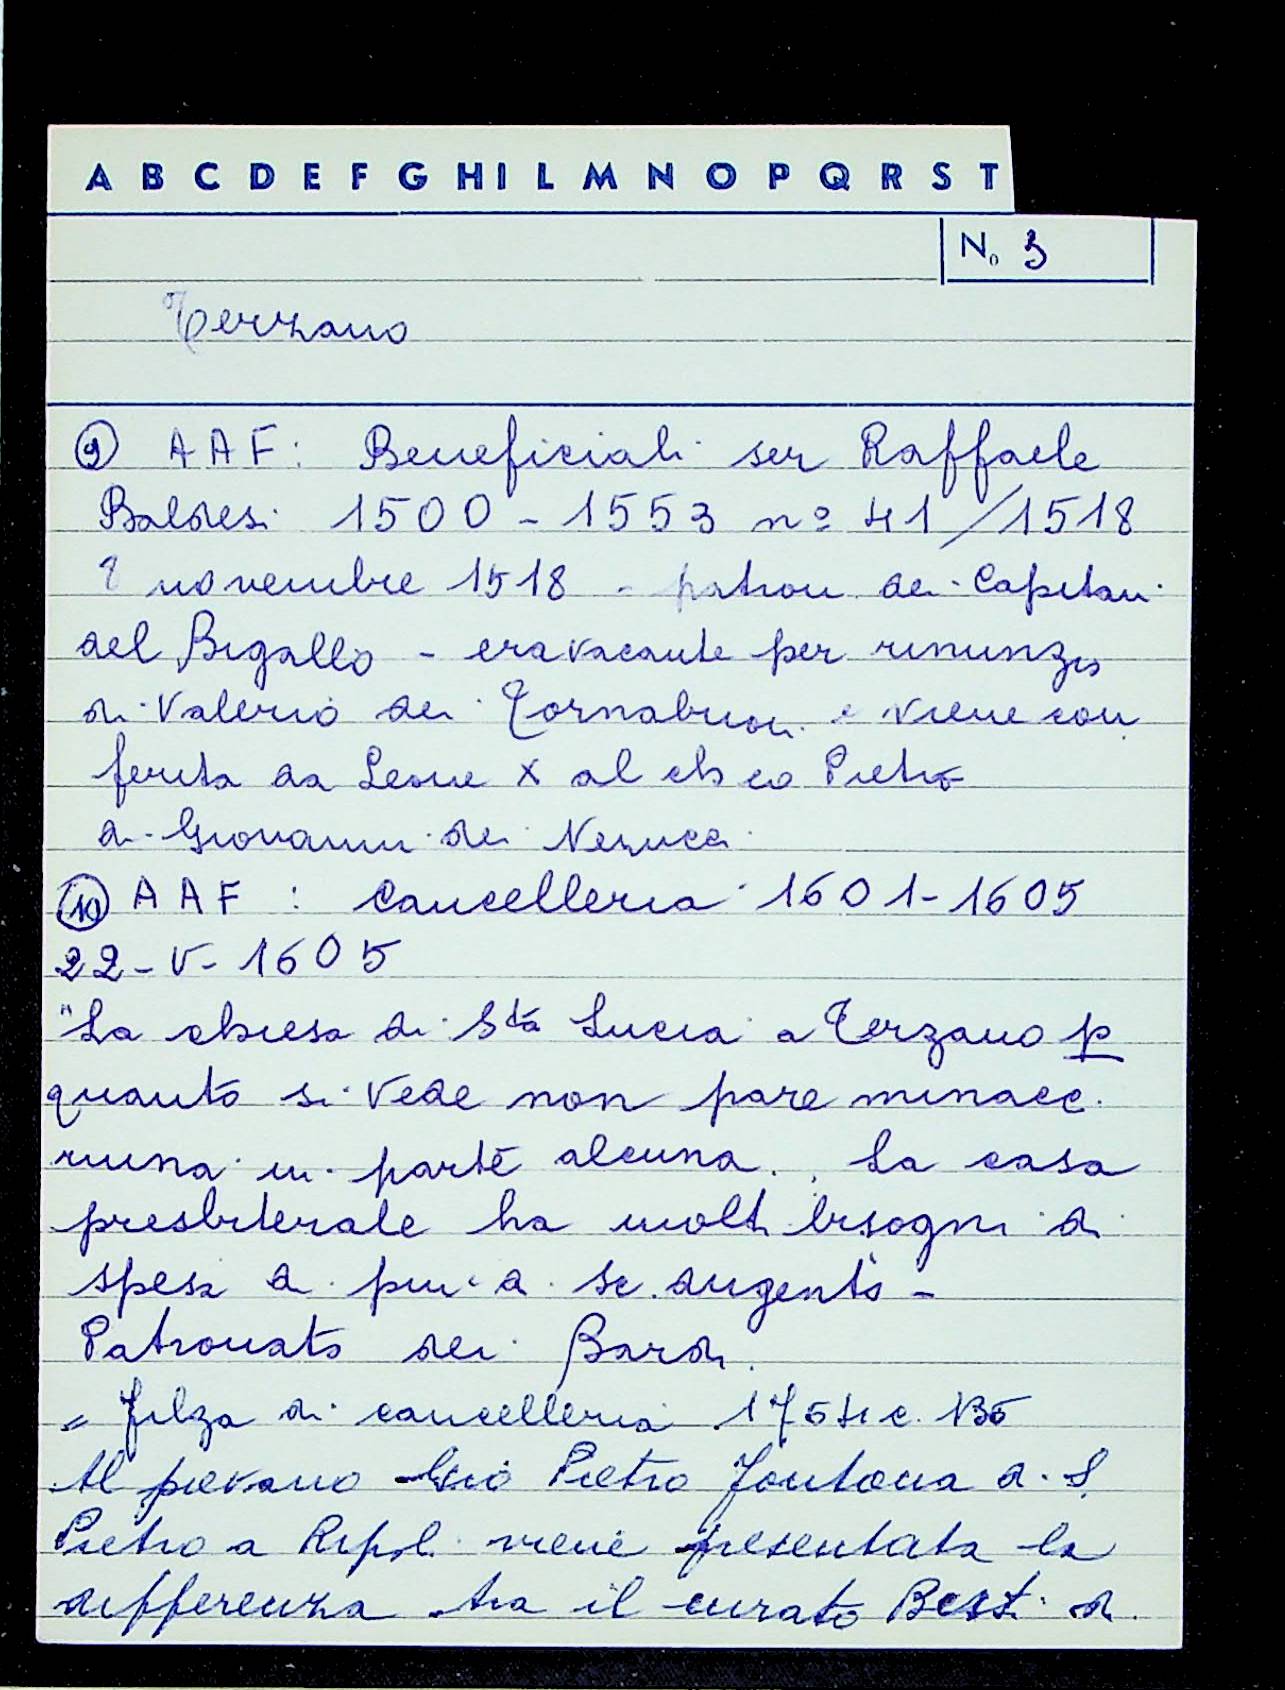 A B C D E F G H I L M N O P Q R S T
No 3
Terzano
9 A A F : Beneficiali ser Raffaele
Baldesi 1500 - 1553 nº 41/1518
novembre 1518 - patroni dei Capitani
del Bigallo - era vacante per rinunzia
di Valerio dei Tornabuoni e viene con
ferita da Leone X al ch co Pietro
di Giovanni dei Nerucci
10 A A F : Cancelleria 1601-1605
22-V-1605
"La chiesa di Sta Lucia a Terzano p
quanto si vede non pare minacc.
ruina in parte alcuna. La casa
presbiterale ha molti bisogni di
spesa di più di sc.
Patronato dei Bardi.
= Filza di cancelleria c.
Al pievano Gio Pietro Fontana di S.
Pietro a Ripoli viene presentata la
differenza tra il curato Besti di